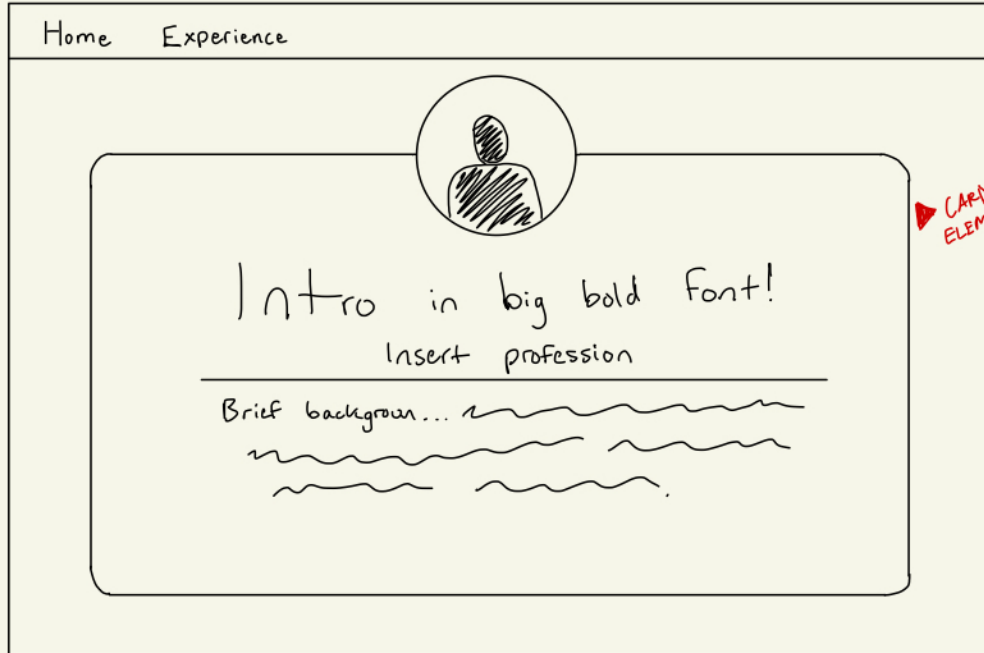 Home Experience
CARD
Intro in big bold font!
Insert profession
Brief backgroun...